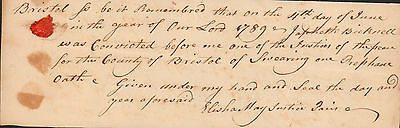 Bristol ss be it Remembered that on the 4th day of June
in the year of Our Lord 1789 Japheth Bicknell
was Convicted before me one of the Justices of the peace
for the County of Bristol of Swearing one Prophane
Oath Given under my hand and Seal the day and
year aforesaid Elisha May Justice Pacis